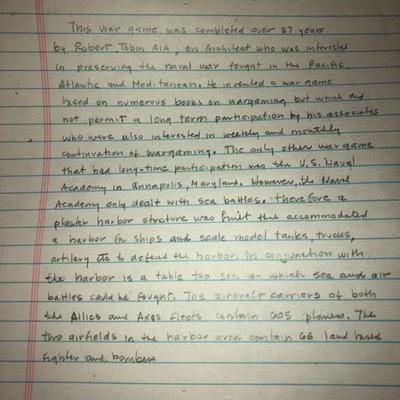 This war game was completed over 27 years
by Robert Tobin AIA, an Architect who was interested
in preserving the naval war fought in the Pacific,
Atlantic and Meditanean. He invented a war game
based on numerous books on wargaming but which did
not permit a long term participation by his associates
who were also interested in weekly and monthly
continuation of wargaming. The only other war game
that had long-time participation was the U.S. Naval
Academy in Annapolis, Maryland. However, the Naval
Academy only dealt with sea battles. Therefore a
plaster harbor structure was built that accommodated
a harbor for ships and scale model tanks, trucks,
artilery to defend the harbor. In conjunction with
the harbor is a table top sea on which sea and air
battles could be fought. The aircraft carriers of both
the Allies and Axas fleets contain 605 planes. The
two airfields in the harbor area contain 66 land based
fighter and bombers